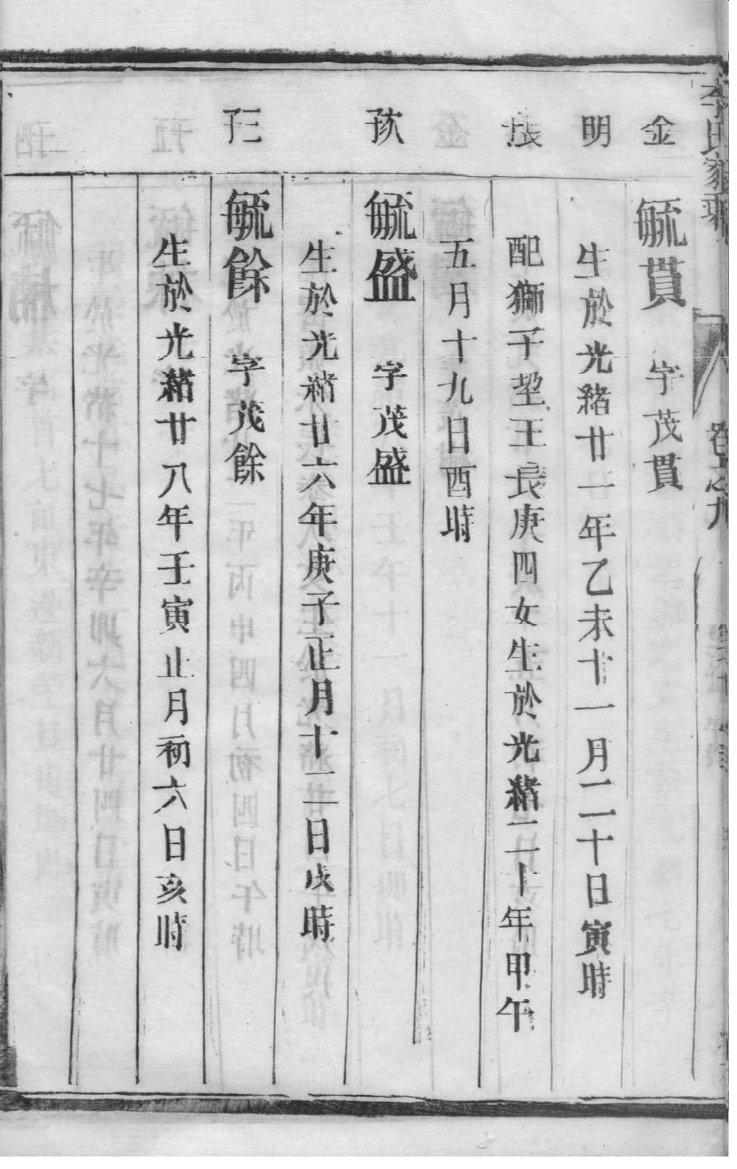 李氏家乘
卷之九
金
毓貫 字茂貫
明
生於光緒廿一年乙未十一月二十日寅時
配獅子堂王長庚四女生於光緒二十年甲午
五月十九日酉時
毓盛 字茂盛
生於光緒廿六年庚子正月十二日戌時
毓餘 字茂餘
生於光緒廿八年壬寅正月初六日亥時